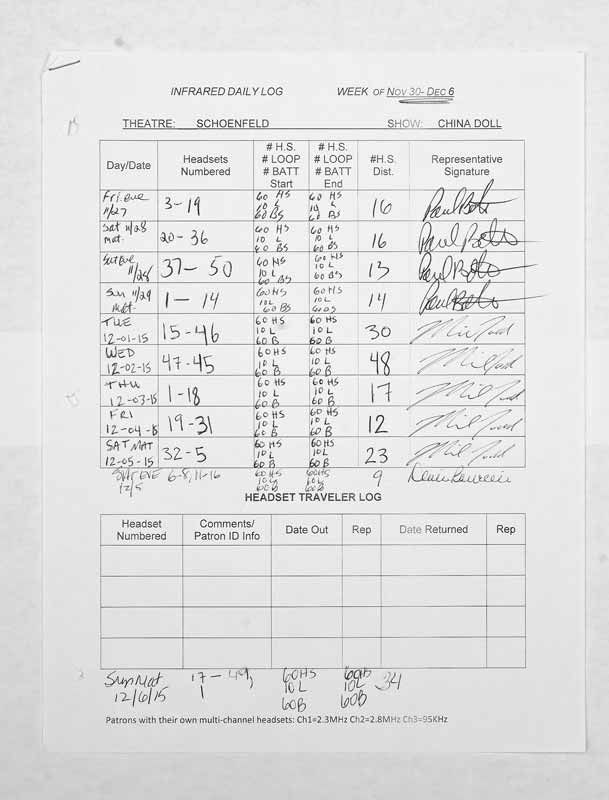 INFRARED DAILY LOG WEEK OF NOV 30- DEC 6
THEATRE: SCHOENFELD SHOW: CHINA DOLL
Day/Date Headsets Numbered # H.S. # LOOP # BATT Start # H.S. # LOOP # BATT End #H.S. Dist. Representative Signature
Fri. eve 11/27 3-19 60 HS 10 L 60 BS 60 HS 10 L 60 BS 16
Sat 11/28 mat. 20-36 60 HS 10 L 60 BS 60 HS 10 L 60 BS 16
Sat Eve 11/28 37-50 60 HS 10 L 60 BS 60 HS 10 L 60 BS 13
Sun 11/29 Mat. 1-14 60 HS 10L 60 BS 60 HS 10L 60 BS 14
TUE 12-01-15 15-46 60 HS 10 L 60 B 60 HS 10 L 60 B 30
WED 12-02-15 47-45 60 HS 10 L 60 B 60 HS 10 L 60 B 48
THU 12-03-15 1-18 60 HS 10 L 60 B 60 HS 10 L 60 B 17
FRI 12-04-15 19-31 60 HS 10 L 60 B 60 HS 10 L 60 B 12
SAT MAT 12-05-15 32-5 60 HS 10 L 60 B 60 HS 10 L 60 B 23
SAT EVE 12/5 6-8, 11-16 60 HS 10 L 60 B 60 HS 10 L 60 B 9
HEADSET TRAVELER LOG
Headset Numbered Comments/ Patron ID Info Date Out Rep Date Returned Rep
Sun Mat 12/6/15 17- 1 60HS 10L 60B 10L 60B 34
Patrons with their own multi-channel headsets: Ch1=2.3MHz Ch2=2.8MHz Ch3=95KHz